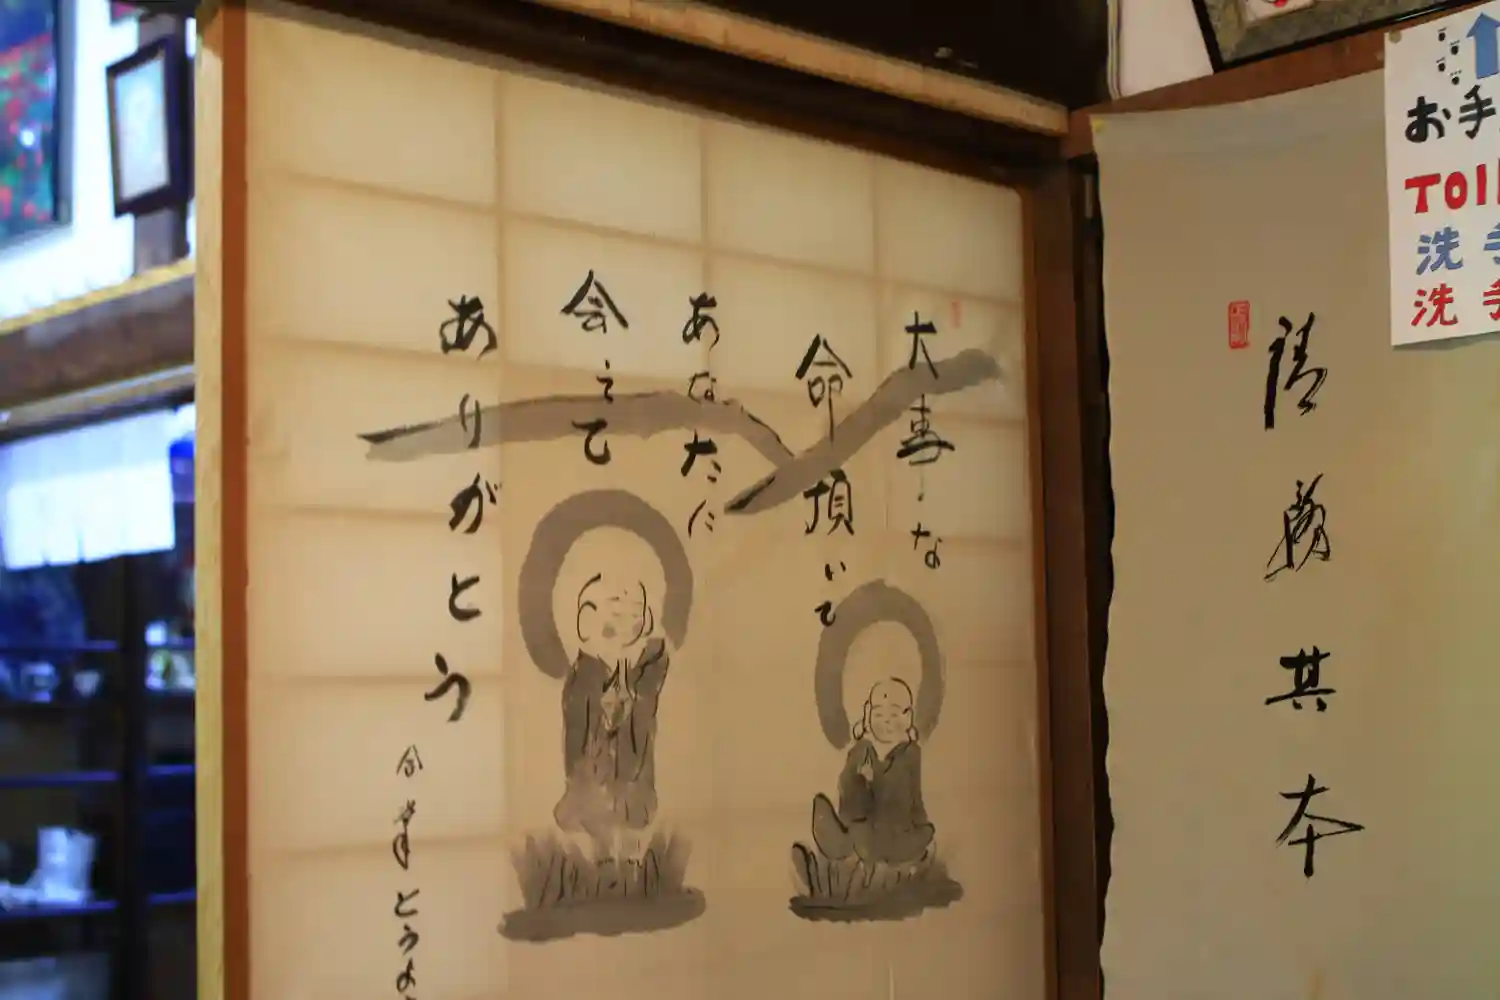 大事な
命頂いて
あなたに
会えて
ありがとう
合掌とうよ
務其本
お手
TOI
洗手
洗手